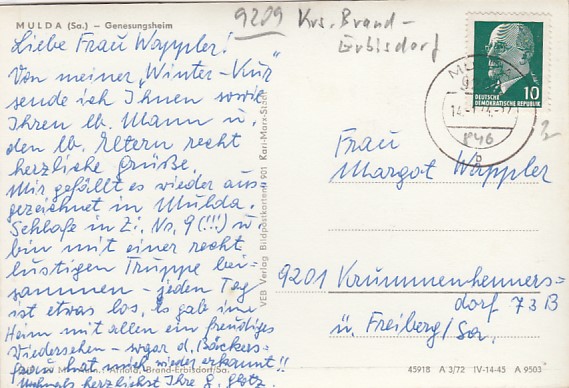 MULDA (Sa.) – Genesungsheim
9209 Krs. Brand-
Erbisdorf
Liebe Frau Wappler!
Von meiner "Winter-Kur"
sende ich Ihnen sowie
Ihren lb. Mann u.
den lb. Eltern recht
herzliche Grüße.
Mir gefällt es wieder aus
gezeichnet in Mulda.
Schlafe in Zi. Nr. 9 (!!!) u.
bin mit einer recht
lustigen Truppe bei-
sammen – jeden Tag
ist etwas los. Es gab im
Heim mit allen ein freudiges
Wiedersehen – sogar d. Bäckers-
frau hat mich wieder erkannt!!
Nochmals herzlichst Ihre G. Götz
Brand-Erbisdorf/Sa.
VEB Verlag Bildpostkarten 901 Karl-Marx-Stadt
10
DEUTSCHE
DEMOKRATISCHE REPUBLIK
MUL
14.
Frau
Margot Wappler
9201 Krummenhenners-
dorf 73B
ü. Freiberg/Sa.
45918 A 3/72 IV-14-45 A 9503